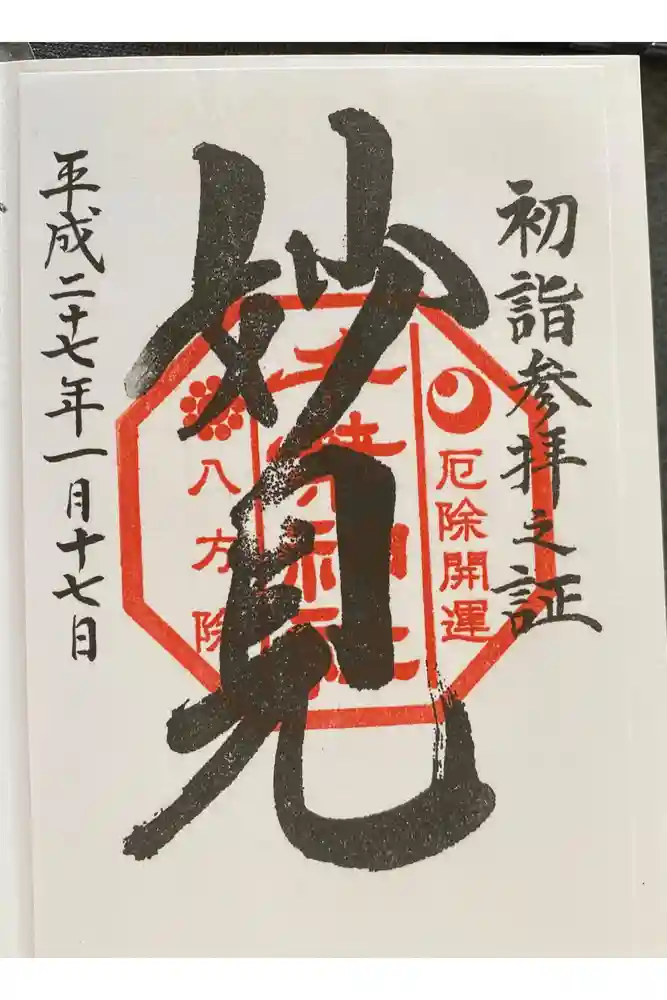 初詣参拝之証
厄除開運
妙見
神社
八方除
平成二十七年一月十七日